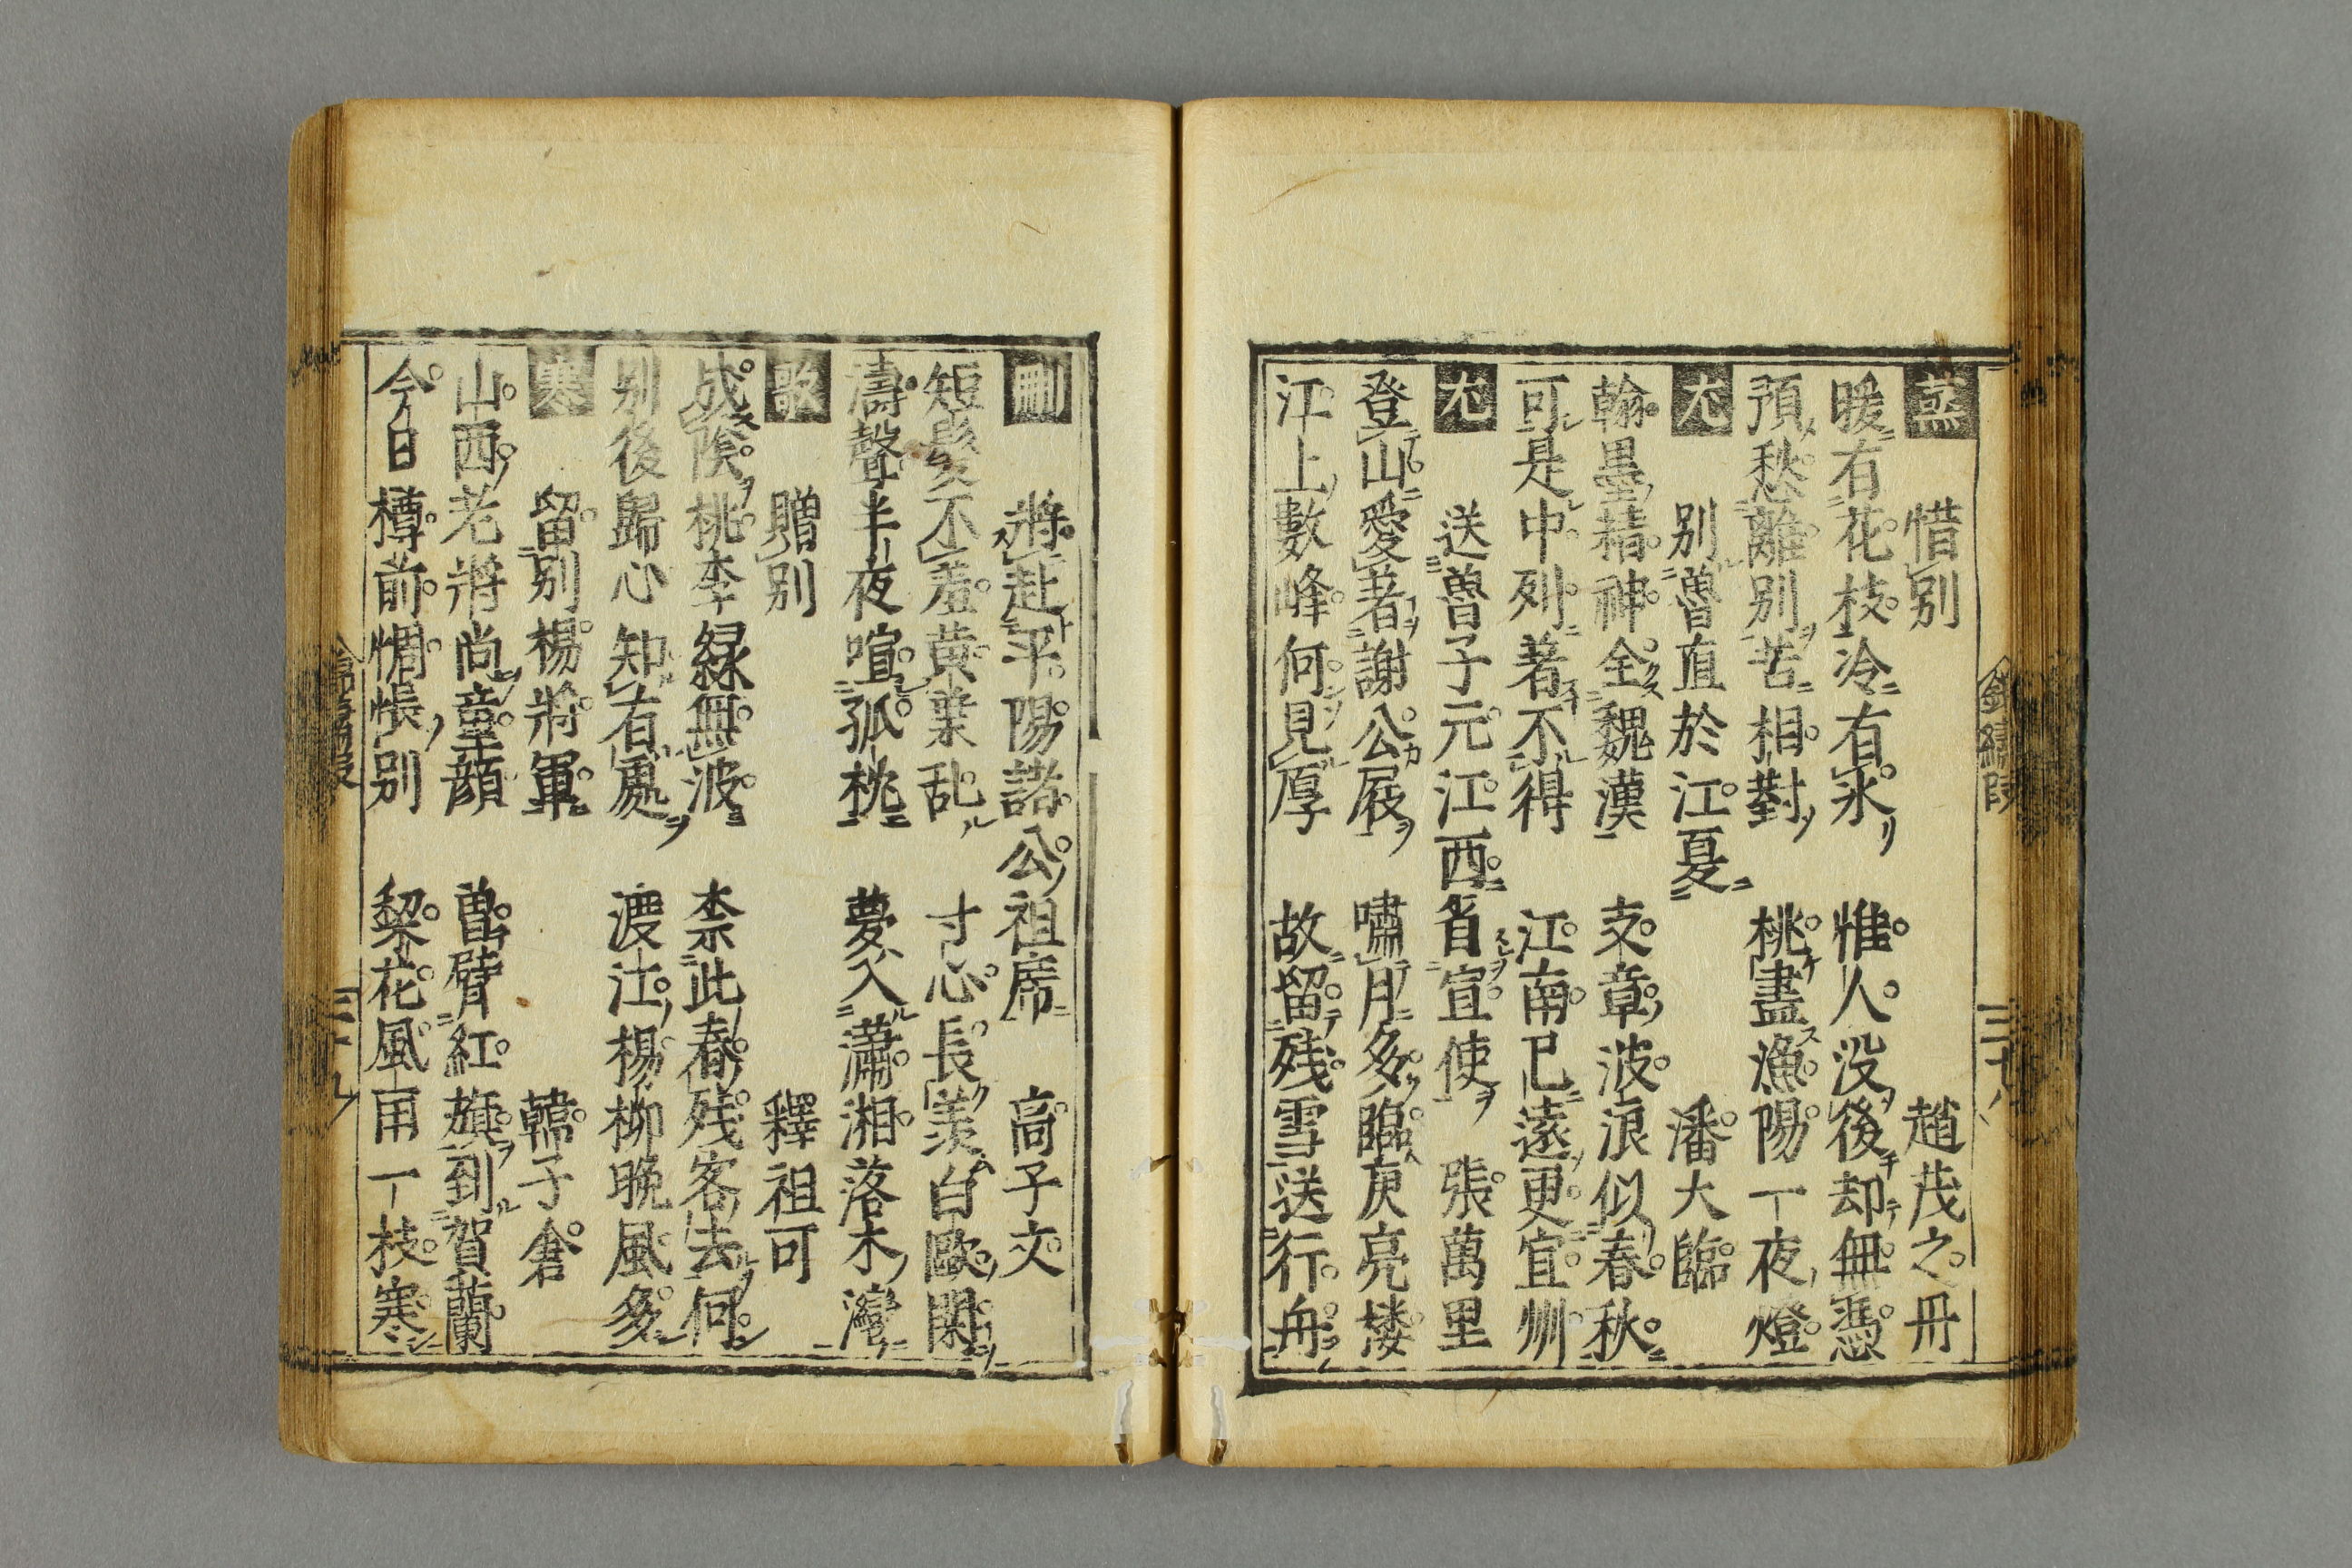 蒸 惜別 趙茂之冊
暖有花枝冷有氷 惟人没後却無憑
預愁離別苦相對 挑盡漁陽一夜燈
尤 別曽直於江夏 潘大臨
翰墨精神全魏漢 文章波浪似春秋
可是中列著不得 江南已遠更宜州
尤 送曽子元江西省宣使 張萬里
登山愛著謝公屐 嘯月多臨庾亮楼
江上數峰何見厚 故留残雪送行舟
三十八
刪 將赴平陽諸公祖席 高子文
短髮不羞黄葉乱 寸心長羨白鷗閑
濤聲半夜喧孤枕 夢入瀟湘落木灣
歌 贈別 釋祖可
成陰桃李緑無波 柰此春残客去何
別後歸心知有處 渡江楊柳晩風多
寒 留別楊將軍 韓子倉
山西老將尚童顔 曽臂紅旗到賀蘭
今日樽前惆悵別 梨花風雨一枝寒
三十九